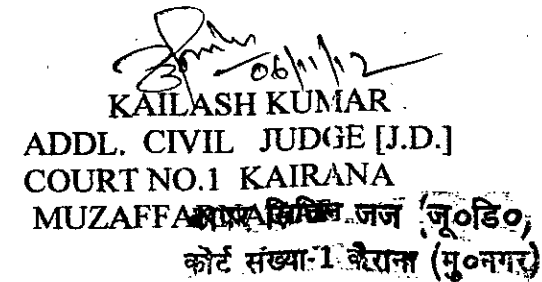 06/11/12
KAILASH KUMAR
ADDL. CIVIL JUDGE [J.D.]
COURT NO.1 KAIRANA
MUZAFFARNAGAR
सिविल जज (जू०डि०,
कोर्ट संख्या-1 कैराना (मु०नगर)